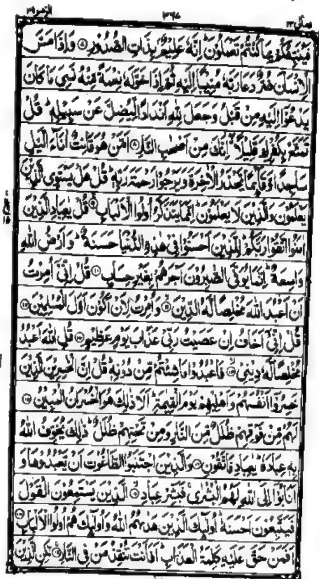 فَيُنَبِّئُكُمْ بِمَا كُنْتُمْ تَعْمَلُوْنَ اِنَّهٗ عَلِيْمٌۢ بِذَاتِ الصُّدُوْرِ وَاِذَا مَسَّ
الْاِنْسَانَ ضُرٌّ دَعَا رَبَّهٗ مُنِيْبًا اِلَيْهِ ثُمَّ اِذَا خَوَّلَهٗ نِعْمَةً مِّنْهُ نَسِيَ مَا كَانَ
يَدْعُوْٓا اِلَيْهِ مِنْ قَبْلُ وَجَعَلَ لِلّٰهِ اَنْدَادًا لِّيُضِلَّ عَنْ سَبِيْلِهٖ قُلْ
تَمَتَّعْ بِكُفْرِكَ قَلِيْلًا اِنَّكَ مِنْ اَصْحٰبِ النَّارِ اَمَّنْ هُوَ قَانِتٌ اٰنَآءَ الَّيْلِ
سَاجِدًا وَّقَآئِمًا يَّحْذَرُ الْاٰخِرَةَ وَيَرْجُوْا رَحْمَةَ رَبِّهٖ قُلْ هَلْ يَسْتَوِي الَّذِيْنَ
يَعْلَمُوْنَ وَالَّذِيْنَ لَا يَعْلَمُوْنَ اِنَّمَا يَتَذَكَّرُ اُولُوا الْاَلْبَابِ قُلْ يٰعِبَادِ الَّذِيْنَ
اٰمَنُوا اتَّقُوْا رَبَّكُمْ لِلَّذِيْنَ اَحْسَنُوْا فِيْ هٰذِهِ الدُّنْيَا حَسَنَةٌ وَاَرْضُ اللّٰهِ
وَاسِعَةٌ اِنَّمَا يُوَفَّى الصّٰبِرُوْنَ اَجْرَهُمْ بِغَيْرِ حِسَابٍ قُلْ اِنِّيْٓ اُمِرْتُ
اَنْ اَعْبُدَ اللّٰهَ مُخْلِصًا لَّهُ الدِّيْنَ وَاُمِرْتُ لِاَنْ اَكُوْنَ اَوَّلَ الْمُسْلِمِيْنَ
قُلْ اِنِّيْٓ اَخَافُ اِنْ عَصَيْتُ رَبِّيْ عَذَابَ يَوْمٍ عَظِيْمٍ قُلِ اللّٰهَ اَعْبُدُ
مُخْلِصًا لَّهٗ دِيْنِيْ فَاعْبُدُوْا مَا شِئْتُمْ مِّنْ دُوْنِهٖ قُلْ اِنَّ الْخٰسِرِيْنَ الَّذِيْنَ
خَسِرُوْٓا اَنْفُسَهُمْ وَاَهْلِيْهِمْ يَوْمَ الْقِيٰمَةِ اَلَا ذٰلِكَ هُوَ الْخُسْرَانُ الْمُبِيْنُ
لَهُمْ مِّنْ فَوْقِهِمْ ظُلَلٌ مِّنَ النَّارِ وَمِنْ تَحْتِهِمْ ظُلَلٌ ذٰلِكَ يُخَوِّفُ اللّٰهُ
بِهٖ عِبَادَهٗ يٰعِبَادِ فَاتَّقُوْنِ وَالَّذِيْنَ اجْتَنَبُوا الطَّاغُوْتَ اَنْ يَّعْبُدُوْهَا وَ
اَنَابُوْٓا اِلَى اللّٰهِ لَهُمُ الْبُشْرٰى فَبَشِّرْ عِبَادِ الَّذِيْنَ يَسْتَمِعُوْنَ الْقَوْلَ
فَيَتَّبِعُوْنَ اَحْسَنَهٗ اُولٰٓئِكَ الَّذِيْنَ هَدٰىهُمُ اللّٰهُ وَاُولٰٓئِكَ هُمْ اُولُوا الْاَلْبَابِ
اَفَمَنْ حَقَّ عَلَيْهِ كَلِمَةُ الْعَذَابِ اَفَاَنْتَ تُنْقِذُ مَنْ فِي النَّارِ لٰكِنِ الَّذِيْنَ